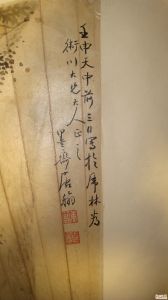 壬申天中前三日寫於席林為
術川大兄大人正之
墨樵居翰